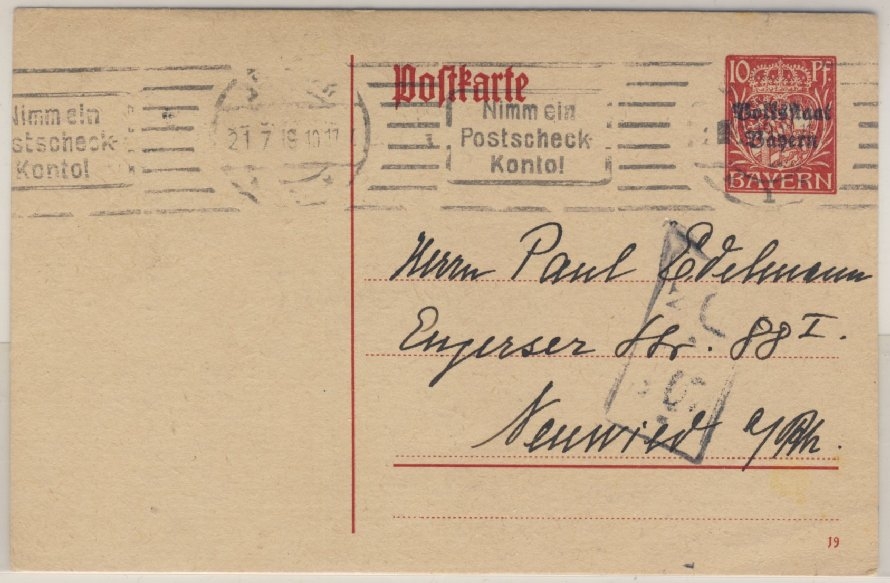 Postkarte
10 Pf.
Volksstaat
Bayern
BAYERN
Nimm ein
Postscheck-
Konto!
21 7 19 10-11
Nimm ein
Postscheck-
Konto!
Herrn Paul Edelmann
Engerser Str. 88 I.
Neuwied a/Rh.
19